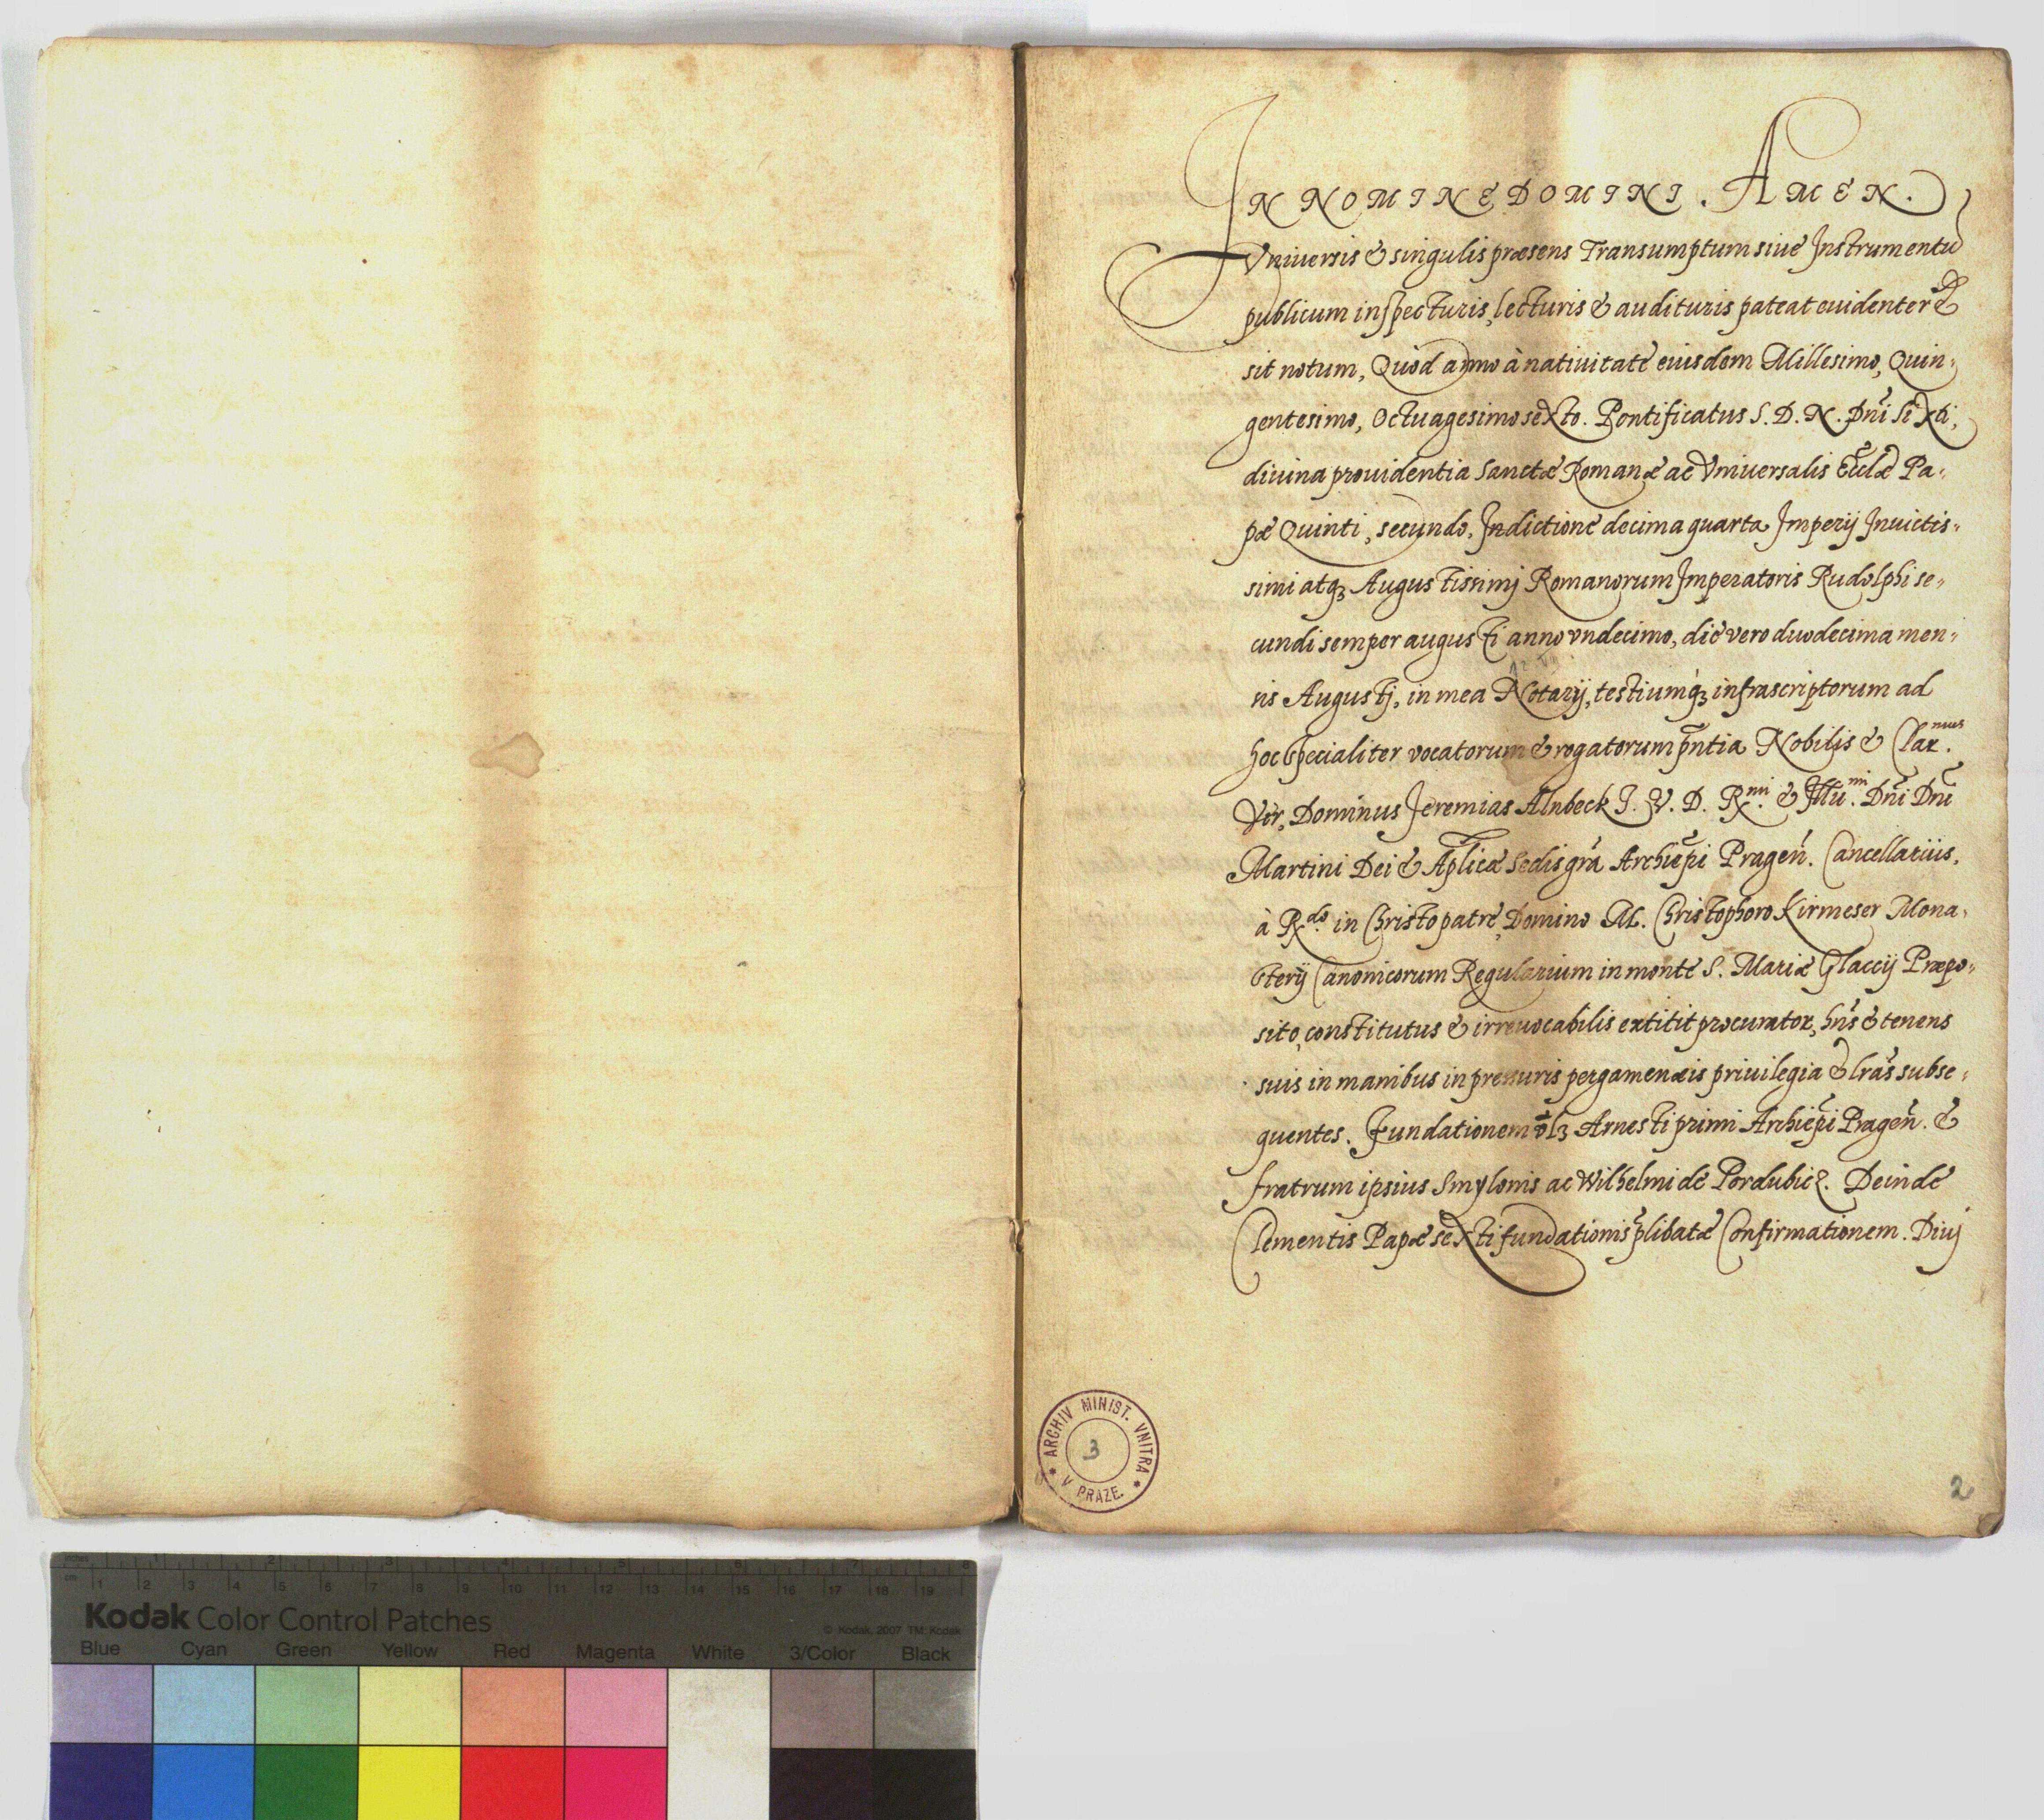 IN NOMINE DOMINI. AMEN.
Vniuersis & singulis præsens Transumptum siue Instrumentū
publicum inspecturis, lecturis & audituris pateat euidenter &
sit notum, Quòd anno à natiuitate eiusdem Millesimo, Quin-
gentesimo, Octuagesimo sexto. Pontificatus S. D. N. Dn̄i Sixti,
diuina prouidentia Sanctæ Romanæ ac Vniuersalis Eccl̄æ Pa-
pæ Quinti, secundo, Indictione decima quarta, Imperij Inuictis-
simi atq3 Augustissimj Romanorum Imperatoris Rudolphi se-
cundi semper augusti anno vndecimo, die vero duodecima men-
sis Augustj, in mea Notarij, testiumq́3 infrascriptorum ad
hoc specialiter vocatorum & rogatorum p̄ntia Nobilis & Clar.mus
Vir, Dominus Jeremias Alnbeck I. V. D. R.mi & Illu.mi Dn̄i Dn̄i
Martini Dei & Aplicæ Sedis gr̄a Archiep̄i Pragen̄. Cancellarius,
à R.do in Christo patre, Domino M. Christophoro Kirmeser Mona-
sterij Canonicorum Regularium in monte S. Mariæ Glaccij Præpo-
sito, constitutus & irreuocabilis extitit procurator, hn̄s & tenens
suis in manibus in pressuris pergamenæis priuilegia & lr̄as subse-
quentes. Fundationem vl3 Arnesti primi Archiep̄i Pragen̄. &
fratrum ipsius Smylonis ac Wilhelmi de Pordubicz. Deinde
Clementis Papæ sexti fundationis p̄libatæ Confirmationem. Diuj
ARCHIV MINIST. VNITRA
V PRAZE.
3
2
inches 1 2 3 4 5 6 7 8
cm 1 2 3 4 5 6 7 8 9 10 11 12 13 14 15 16 17 18 19
Kodak Color Control Patches
© Kodak, 2007 TM: Kodak
Blue Cyan Green Yellow Red Magenta White 3/Color Black